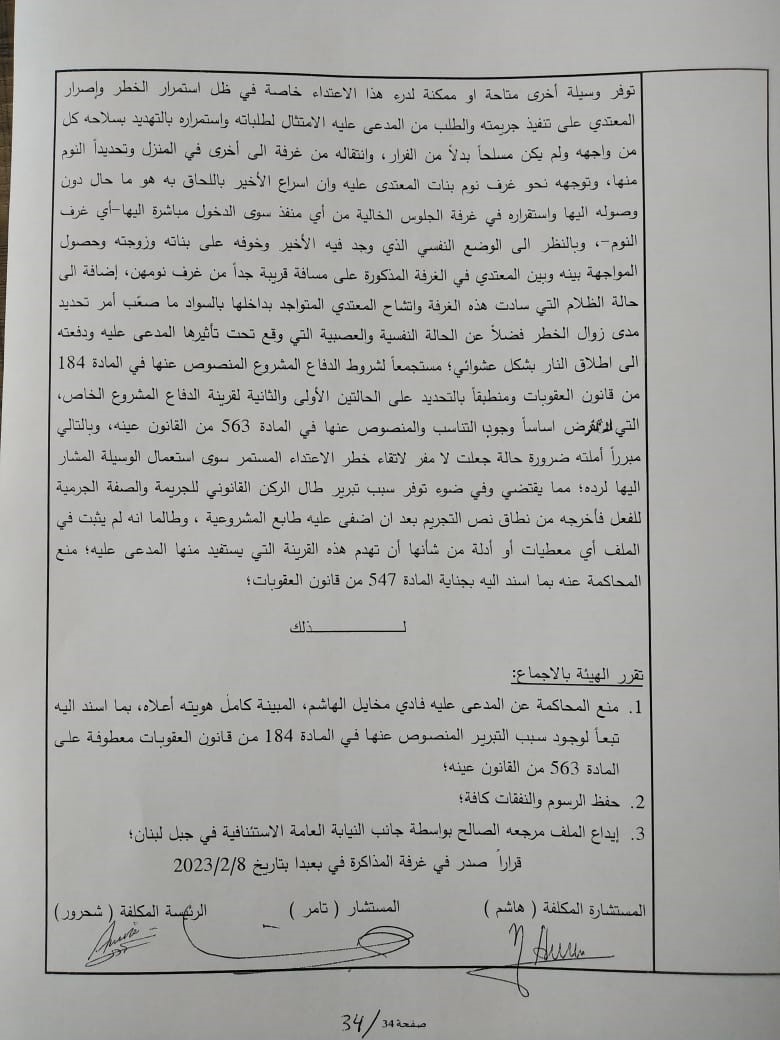 توفر وسيلة أخرى متاحة او ممكنة لدرء هذا الاعتداء خاصة في ظل استمرار الخطر وإصرار
المعتدي على تنفيذ جريمته والطلب من المدعى عليه الامتثال لطلباته واستمراره بالتهديد بسلاحه كل
من واجهه ولم يكن مسلحاً بدلاً من الفرار، وانتقاله من غرفة الى أخرى في المنزل وتحديداً النوم
منها، وتوجهه نحو غرف نوم بنات المعتدى عليه وان اسراع الأخير باللحاق به هو ما حال دون
وصوله اليها واستقراره في غرفة الجلوس الخالية من أي منفذ سوى الدخول مباشرة اليها-أي غرف
النوم-، وبالنظر الى الوضع النفسي الذي وجد فيه الأخير وخوفه على بناته وزوجته وحصول
المواجهة بينه وبين المعتدي في الغرفة المذكورة على مسافة قريبة جداً من غرف نومهن، إضافة الى
حالة الظلام التي سادت هذه الغرفة واتشاح المعتدي المتواجد بداخلها بالسواد ما صعّب أمر تحديد
مدى زوال الخطر فضلاً عن الحالة النفسية والعصبية التي وقع تحت تأثيرها المدعى عليه ودفعته
الى اطلاق النار بشكل عشوائي؛ مستجمعاً لشروط الدفاع المشروع المنصوص عنها في المادة 184
من قانون العقوبات ومنطبقاً بالتحديد على الحالتين الأولى والثانية لقرينة الدفاع المشروع الخاص،
التي اساساً وجوب التناسب والمنصوص عنها في المادة 563 من القانون عينه، وبالتالي
مبرراً أملته ضرورة حالة جعلت لا مفر لاتقاء خطر الاعتداء المستمر سوى استعمال الوسيلة المشار
اليها لرده؛ مما يقتضي وفي ضوء توفر سبب تبرير طال الركن القانوني للجريمة والصفة الجرمية
للفعل فأخرجه من نطاق نص التجريم بعد ان اضفى عليه طابع المشروعية ، وطالما انه لم يثبت في
الملف أي معطيات أو أدلة من شأنها أن تهدم هذه القرينة التي يستفيد منها المدعى عليه؛ منع
المحاكمة عنه بما اسند اليه بجناية المادة 547 من قانون العقوبات؛
لـــــــــــــذلك
تقرر الهيئة بالاجماع:
1. منع المحاكمة عن المدعى عليه فادي مخايل الهاشم، المبينة كامل هويته أعلاه، بما اسند اليه
تبعاً لوجود سبب التبرير المنصوص عنها في المادة 184 من قانون العقوبات معطوفة على
المادة 563 من القانون عينه؛
2. حفظ الرسوم والنفقات كافة؛
3. إيداع الملف مرجعه الصالح بواسطة جانب النيابة العامة الاستئنافية في جبل لبنان؛
قراراً صدر في غرفة المذاكرة في بعبدا بتاريخ 2023/2/8
المستشارة المكلفة ( هاشم ) المستشار ( تامر ) الرئيسة المكلفة ( شحرور )
صفحة 34 /34